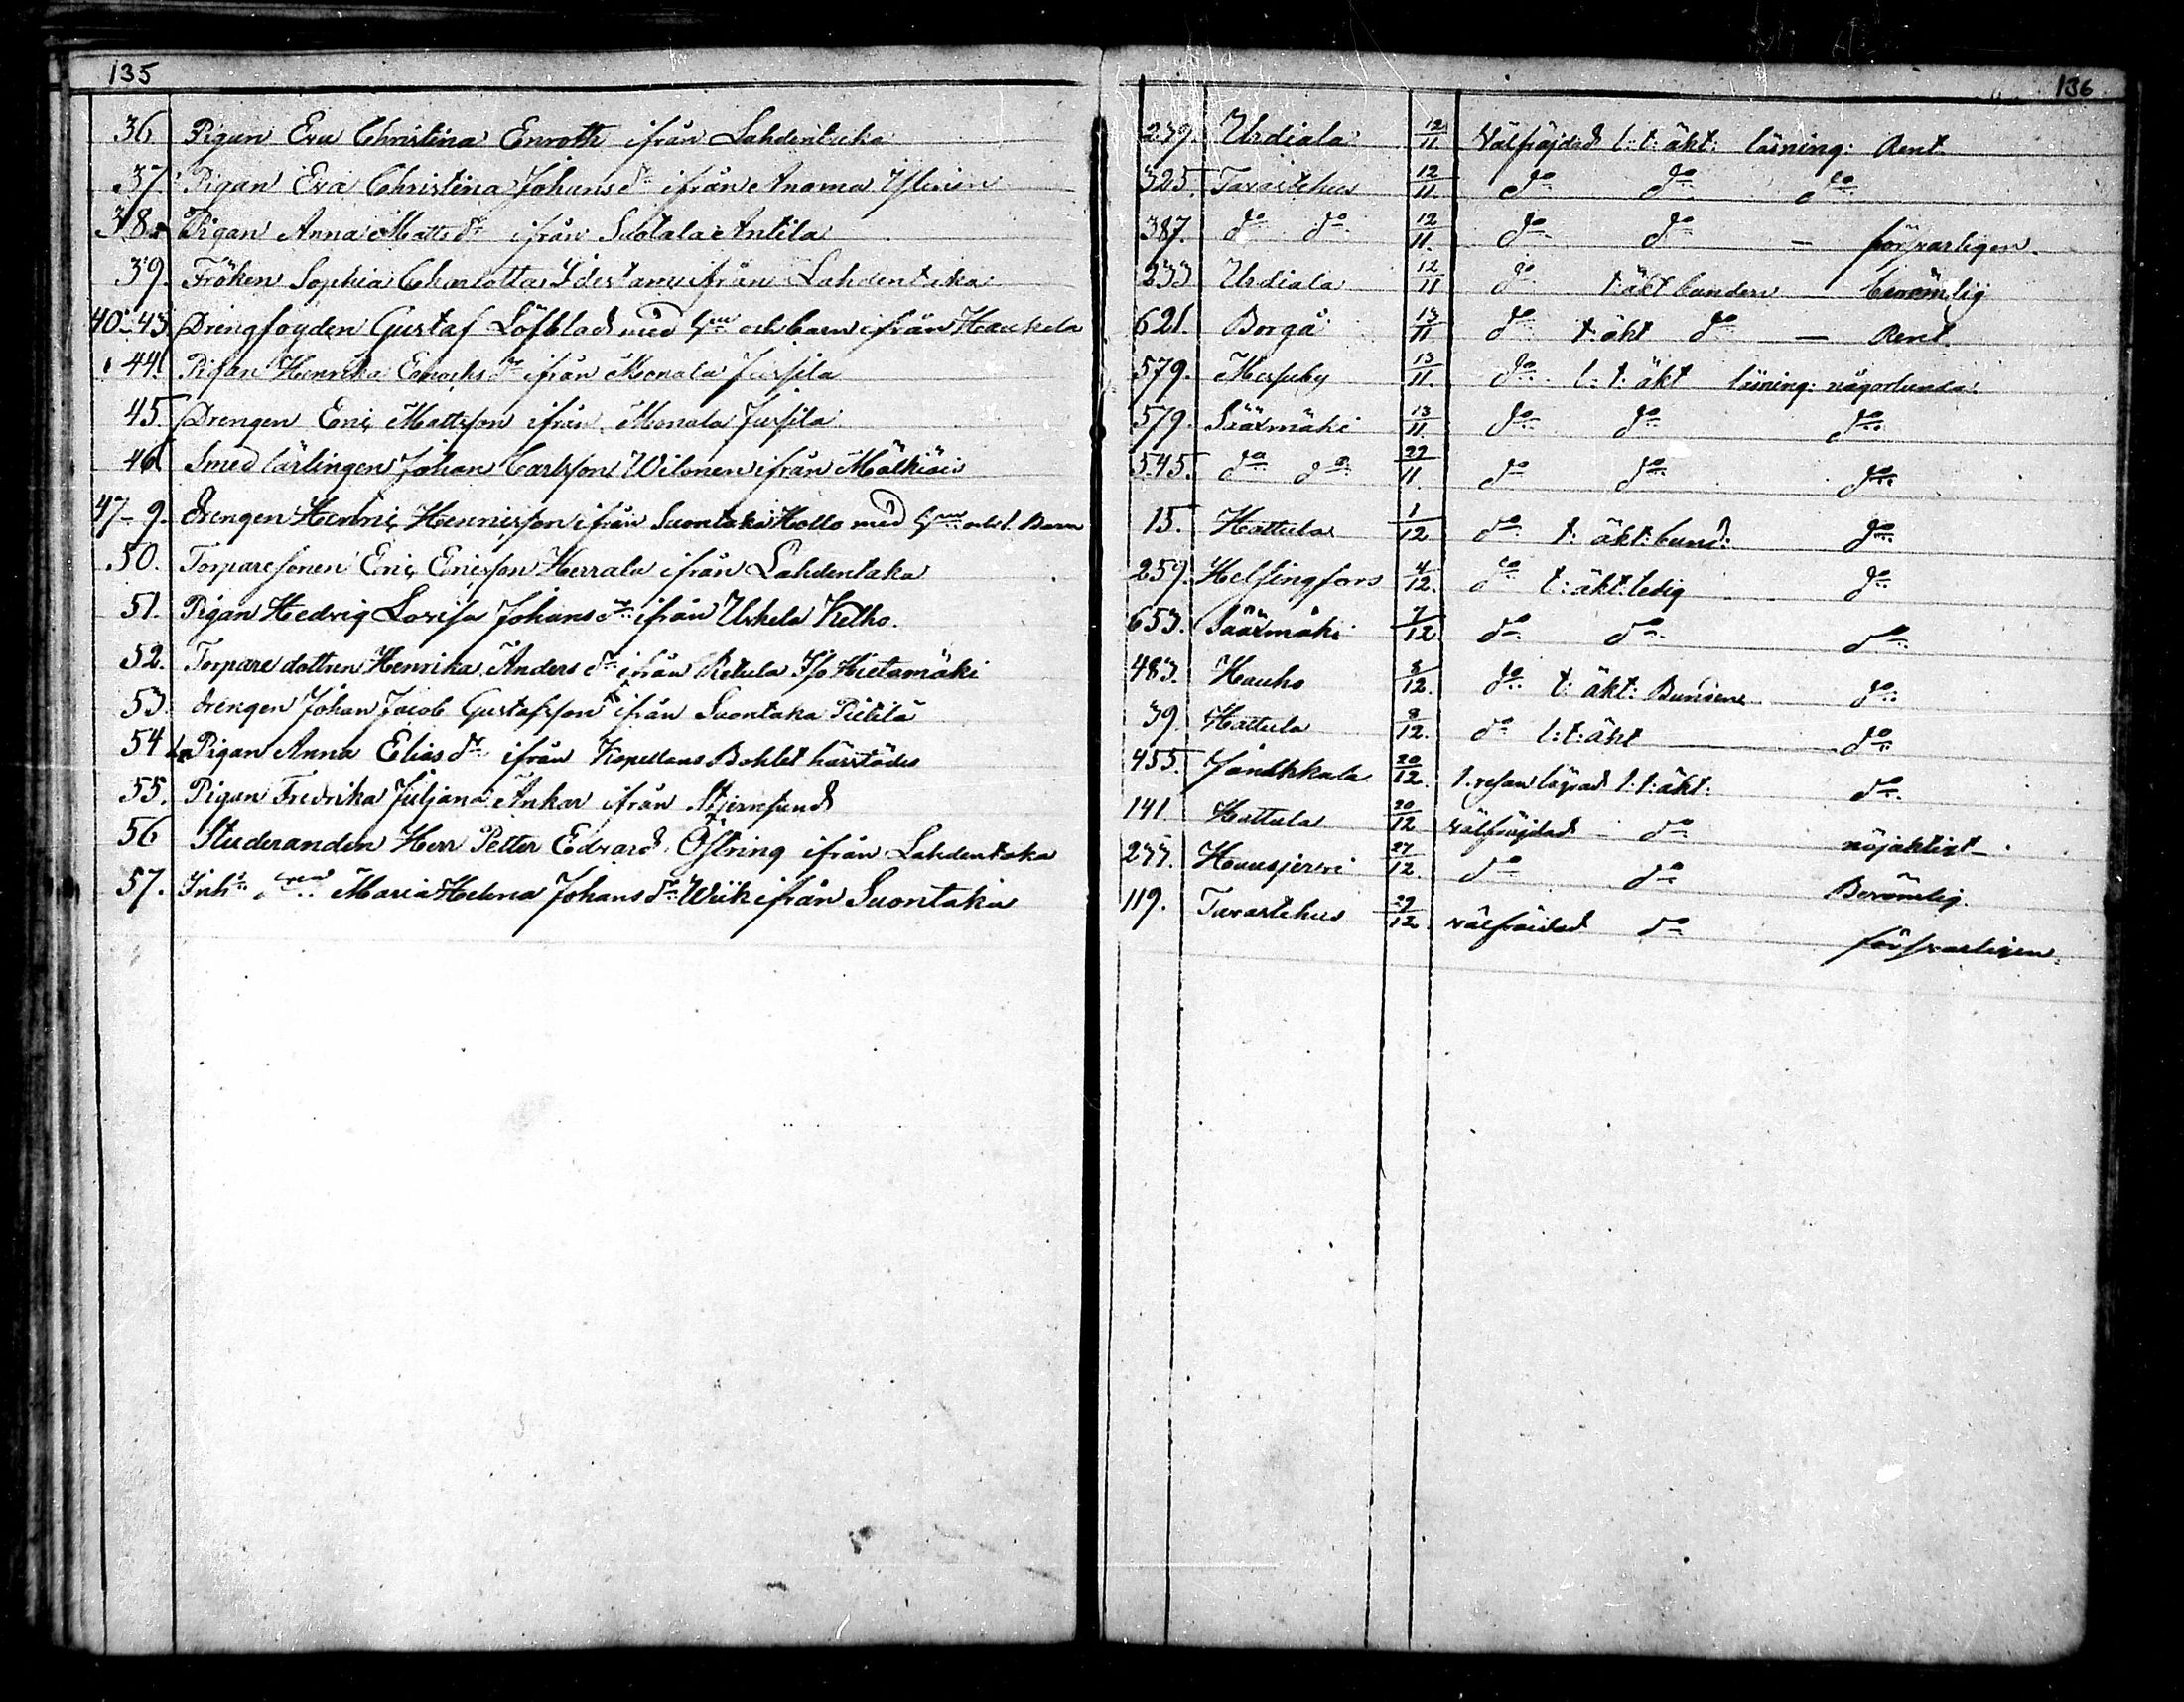 135
36 Pigan Eva Christina Enroth ifrån Lahdentaka
37. Pigan Eva Christina Johans dr ifrån Anoma Ylinen
38. Pigan Anna Matts dr ifrån Suotala Antila
39. Fröken Sophia Charlotta ifrån Lahdentaka
40-43. Drengfogden Gustaf Löfblad med hu och barn ifrån Haukela
44. Pigan Henrika Enochs dr ifrån Menala Jussila
45. Drengen Eric Mattsson ifrån Menala Jussila
46. Smed lärlingen Johan Carlsson Wilonen ifrån Mälkiäis
47-9. drengen Henric Henricsson ifrån Suontaka Hollo med hu och 1. Barn
50. Torparesonen Eric Ericsson Herrala ifrån Lahdentaka
51. Pigan Hedvig Lovisa Johans dr ifrån Urhela Kelho.
52. Torpare dottren Henrika Anders dr ifrån Retula Iso Hietamäki
53. drengen Johan Jacob Gustafsson ifrån Suontaka Pietilä
54 Pigan Anna Elias dr ifrån Kapellans Bohlet härstädes
55. Pigan Fredrika Juljana Ankar ifrån Stjernsund
56 Studeranden Herr Petter Edvard Östring ifrån Lahdentaka
57. Inh: Maria Helena Johans dr Wiik ifrån Suontaka
136
239. Urdiala 12/11 Välfräjdad l: t: äkt: läsning: Rent
325. Tavastehus 12/11. do do do
387. do do 12/11. do do — försvarligen.
233 Urdiala 12/11 do t: äkt bunden — berömlig
621. Borgå 13/11 do t: äkt do — Rent
579. Messuby 13/11. do l: t: äkt läsning: någorlunda:
579. Sääxmäki 13/11. do do do
545. do do 22/11. do do do
15. Hattula 1/12 do t: äkt: bund: do
259. Helsingfors 4/12. do t: äkt: ledig do
653. Sääxmäki 7/12 do do do
483. Hauho 8/12. do t: äkt: Bunden do
39. Hattula 9/12. do l: t: äkt do
455. Janakkala 20/12. 1. resan lägrad l: t: äkt: do
141. Hattula 20/12 välfräjdad do nöjaktigt
277. Hausjervi 27/12. do do Berömlig.
119. Tavastehus 29/12. välfräjdad do försvarligen.